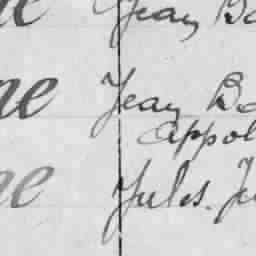 Jean Ba
ne Jean Ba
appol
ne Jules. Ju